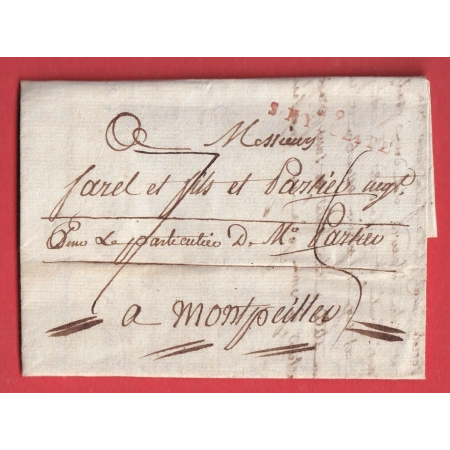 A Messieurs
farel et fils et Partier negt
Pour Le particulier D. Mo. Partier
a Montpeillier